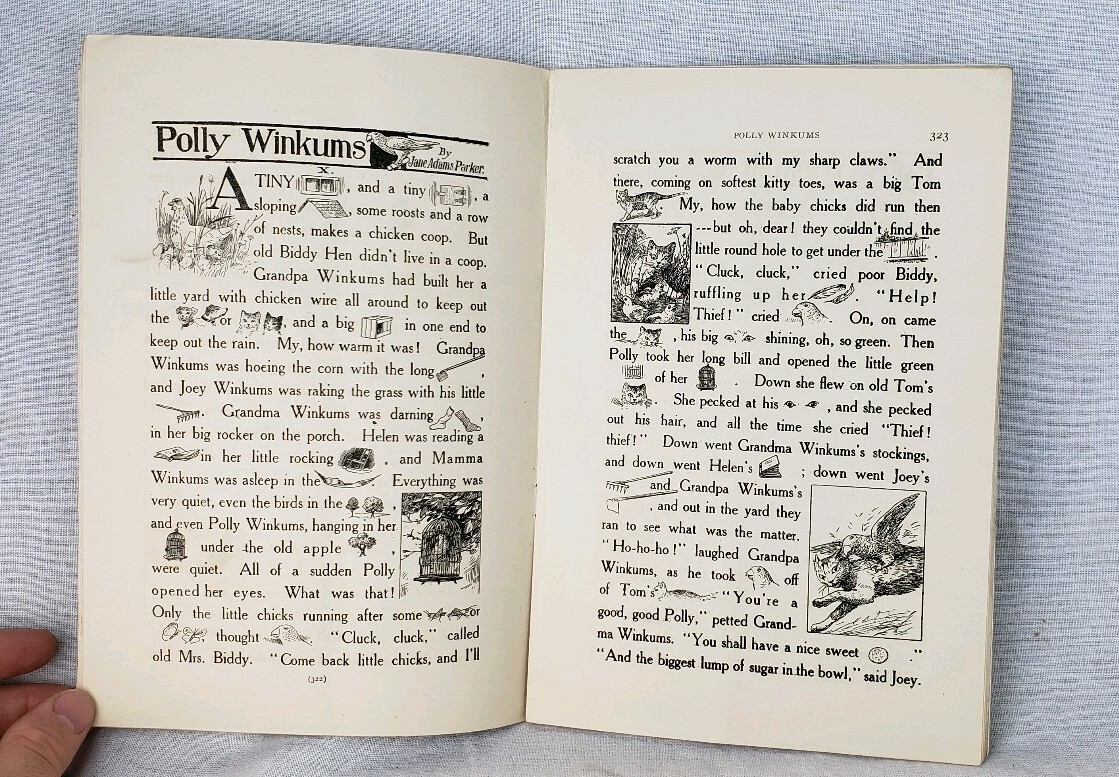 Polly Winkums
By
Jane Adams Parker.
X.
A TINY , and a tiny , a
sloping , some roosts and a row
of nests, makes a chicken coop. But
old Biddy Hen didn't live in a coop.
Grandpa Winkums had built her a
little yard with chicken wire all around to keep out
the or , and a big in one end to
keep out the rain. My, how warm it was! Grandpa
Winkums was hoeing the corn with the long ,
and Joey Winkums was raking the grass with his little
. Grandma Winkums was darning ,
in her big rocker on the porch. Helen was reading a
in her little rocking , and Mamma
Winkums was asleep in the . Everything was
very quiet, even the birds in the ,
and even Polly Winkums, hanging in her
under the old apple ,
were quiet. All of a sudden Polly
opened her eyes. What was that!
Only the little chicks running after some or
thought . "Cluck, cluck," called
old Mrs. Biddy. "Come back little chicks, and I'll
(322)
POLLY WINKUMS 323
scratch you a worm with my sharp claws." And
there, coming on softest kitty toes, was a big Tom
. My, how the baby chicks did run then
---but oh, dear! they couldn't find the
little round hole to get under the .
"Cluck, cluck," cried poor Biddy,
ruffling up her . "Help!
Thief!" cried . On, on came
the , his big shining, oh, so green. Then
Polly took her long bill and opened the little green
of her . Down she flew on old Tom's
. She pecked at his , and she pecked
out his hair, and all the time she cried "Thief!
thief!" Down went Grandma Winkums's stockings,
and down went Helen's ; down went Joey's
and Grandpa Winkums's
, and out in the yard they
ran to see what was the matter.
"Ho-ho-ho!" laughed Grandpa
Winkums, as he took off
of Tom's . "You're a
good, good Polly," petted Grand-
ma Winkums. "You shall have a nice sweet ."
"And the biggest lump of sugar in the bowl," said Joey.